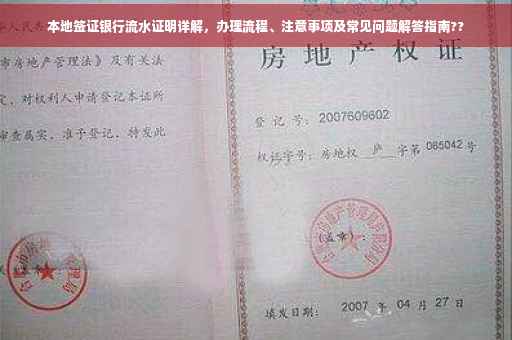 本地签证银行流水证明详解，办理流程、注意事项及常见问题解答指南??
人民共
市房地产管理法》及有关法
定，对权利人申请登记本证所
审查属实，准予登记，特发此
房地产权证
登 记 号：2007609602
权证字号：房地权 庐 字第 085042 号
(盖章)：
填发日期： 2007 年 04 月 27 日